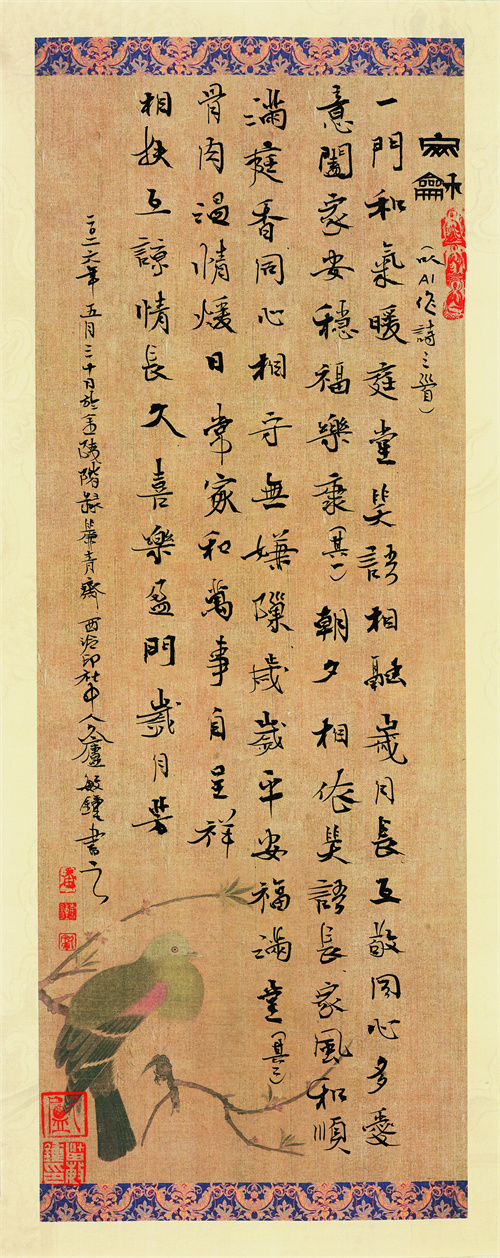 家龢
（以AI作詩三首）
一門和氣暖庭堂笑語相融歲月長互敬同心多愛
意闔家安穩福樂康（其一）朝夕相依笑語長家風和順
滿庭香同心相守無嫌隙歲歲平安福滿堂（其二）
骨肉温情煖日常家和萬事自呈祥
相扶互諒情長久喜樂盈門歲月芳
二〇二六年五月三十日於金陵階綠青齋西泠印社中人久廬敏鍾書之